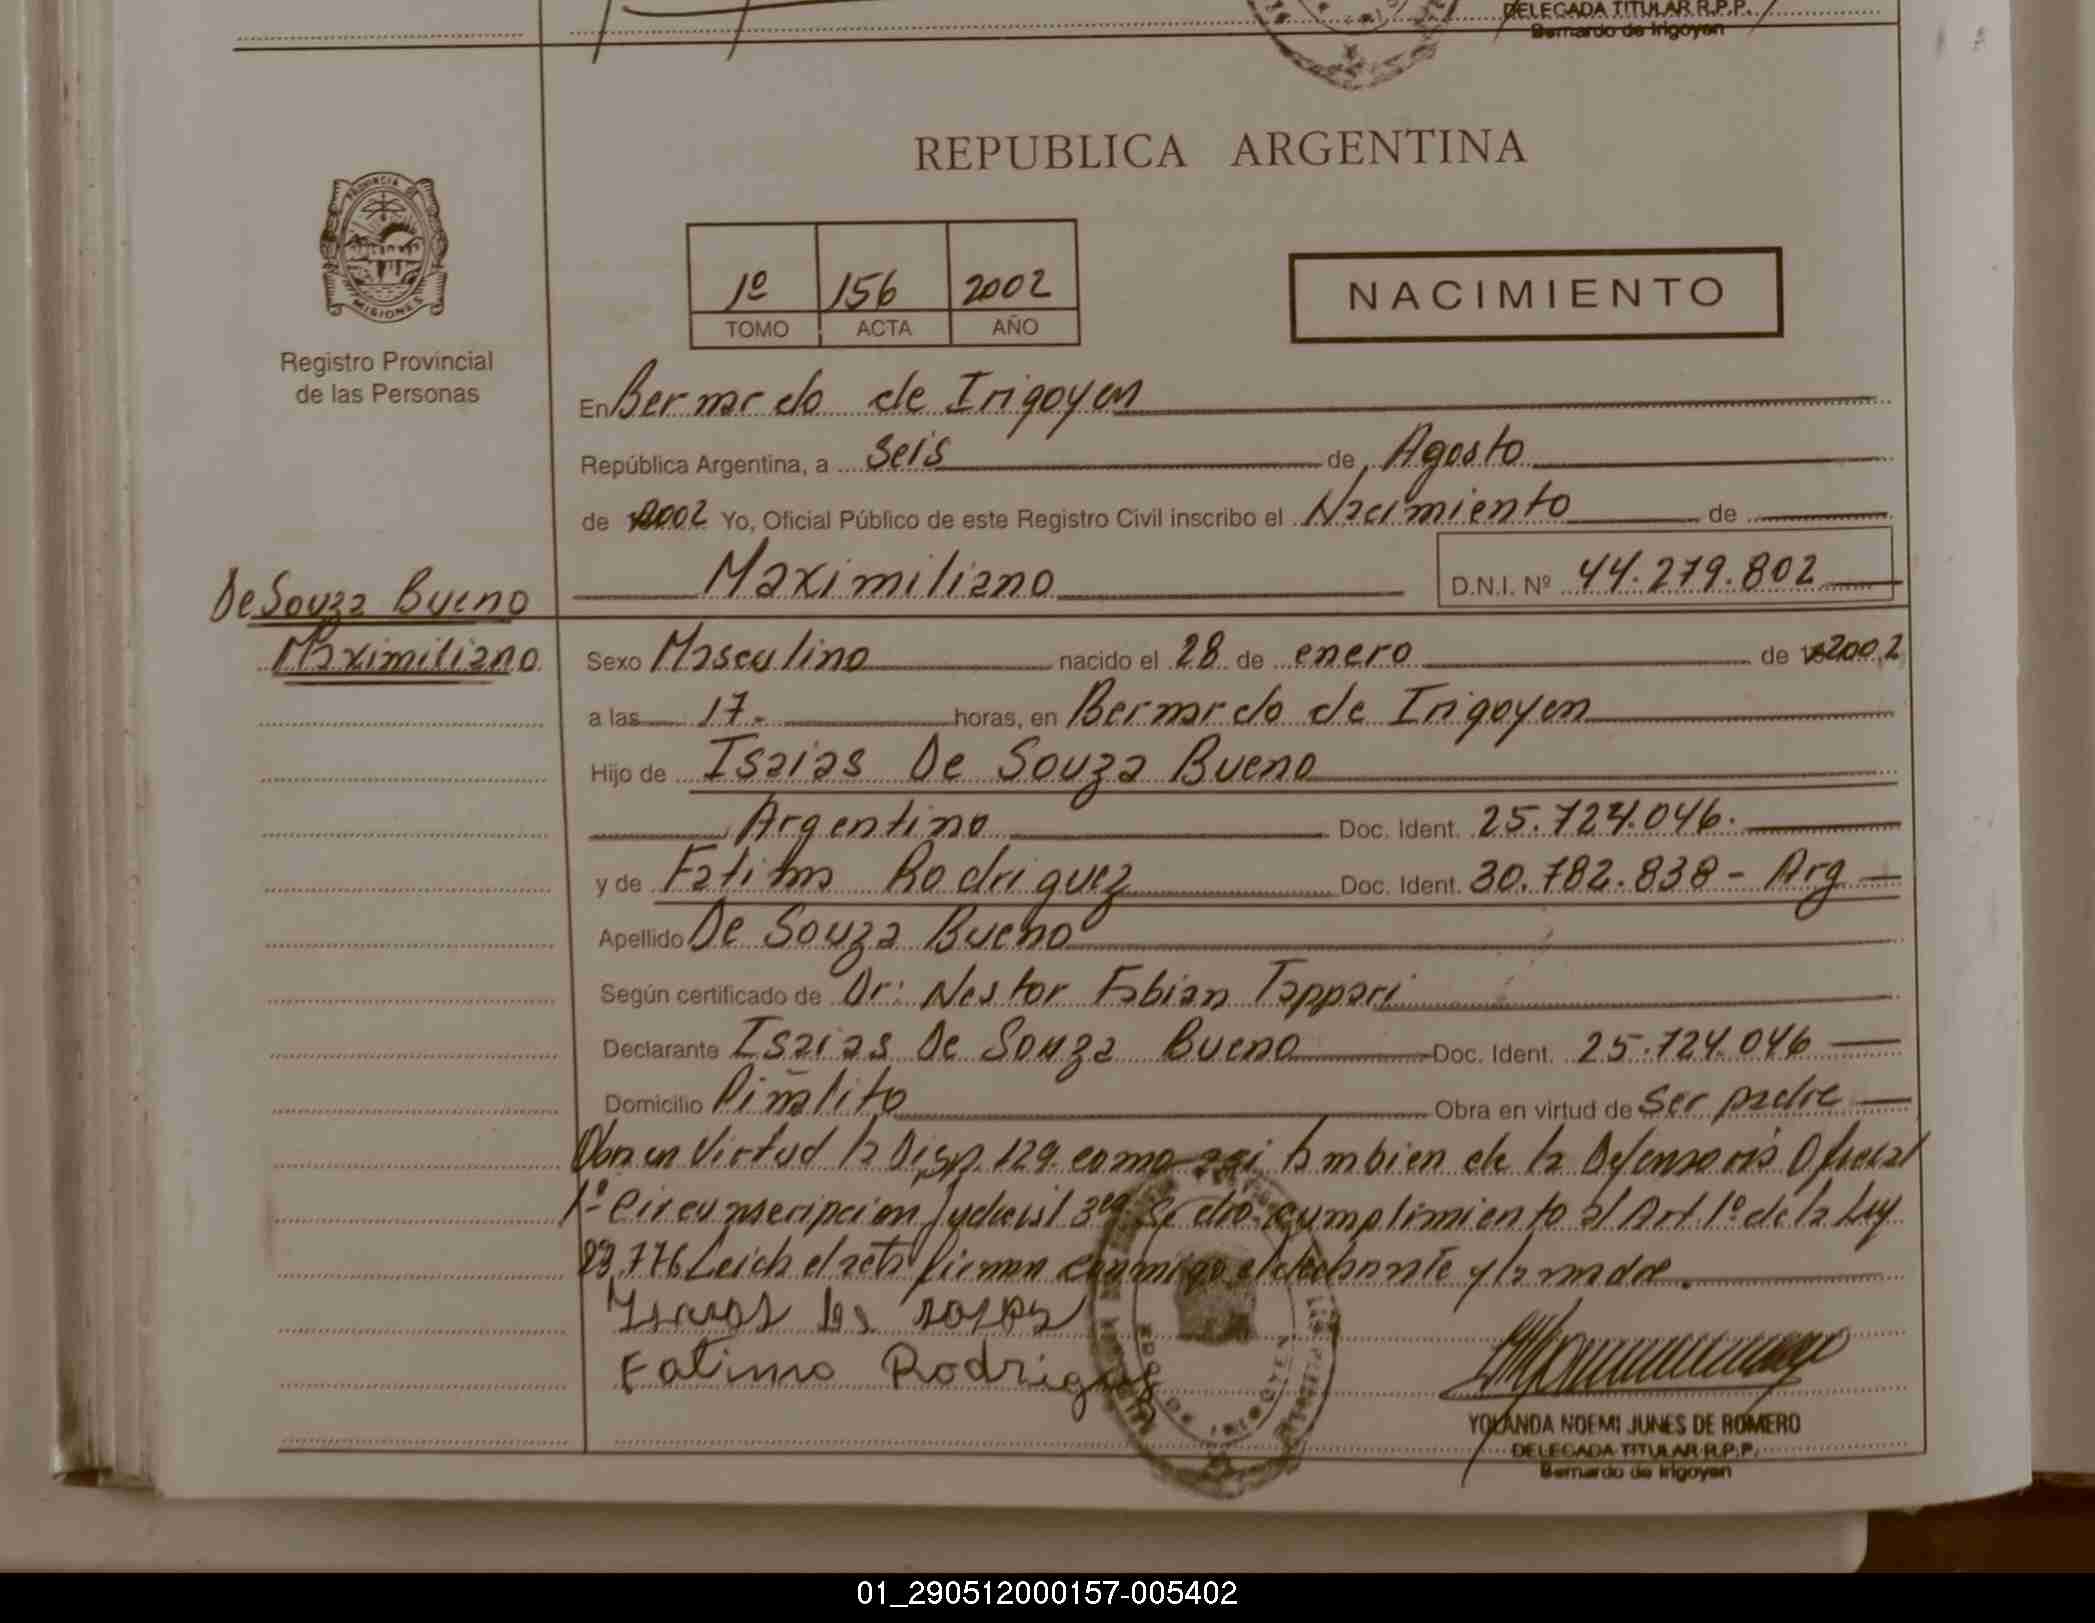 DELEGADA TITULAR R.P.P.
Bernardo de Irigoyen
REPUBLICA ARGENTINA
PROVINCIA DE
MISIONES
Registro Provincial
de las Personas
1º 156 2002
TOMO ACTA AÑO
NACIMIENTO
En Bernardo de Irigoyen
República Argentina, a seis de Agosto
de 2002 Yo, Oficial Público de este Registro Civil inscribo el Nacimiento de
Maximiliano D.N.I. Nº 44.279.802
De Souza Bueno
Maximiliano
Sexo Masculino nacido el 28 de enero de 2002
a las 17.- horas, en Bernardo de Irigoyen
Hijo de Isaias De Souza Bueno
Argentino Doc. Ident. 25.724.046.
y de Fatima Rodriguez Doc. Ident. 30.782.838 - Arg
Apellido De Souza Bueno
Según certificado de Dr: Nestor Fabian Tappari
Declarante Isaias De Souza Bueno Doc. Ident. 25.724.046
Domicilio Piñalito Obra en virtud de ser padre
Obra en Virtud la Disp. 129 como asi tambien de la Defensoria Oficial
1º Circunscripcion Judicial 3era Se dio cumplimiento al Art 1º de la Ley
23.776 Leida el acta firman conmigo el declarante y la madre.
Fatima Rodriguez
DE IRIGOYEN
YOLANDA NOEMI JUNES DE ROMERO
DELEGADA TITULAR R.P.P.
Bernardo de Irigoyen
01_290512000157-005402